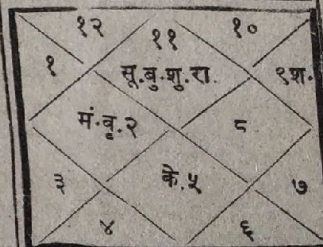 १२ ११ १०
१ सू.बु.शु.रा. ९श.
मं.बृ.२ ८
३ के.५ ७
४ ६